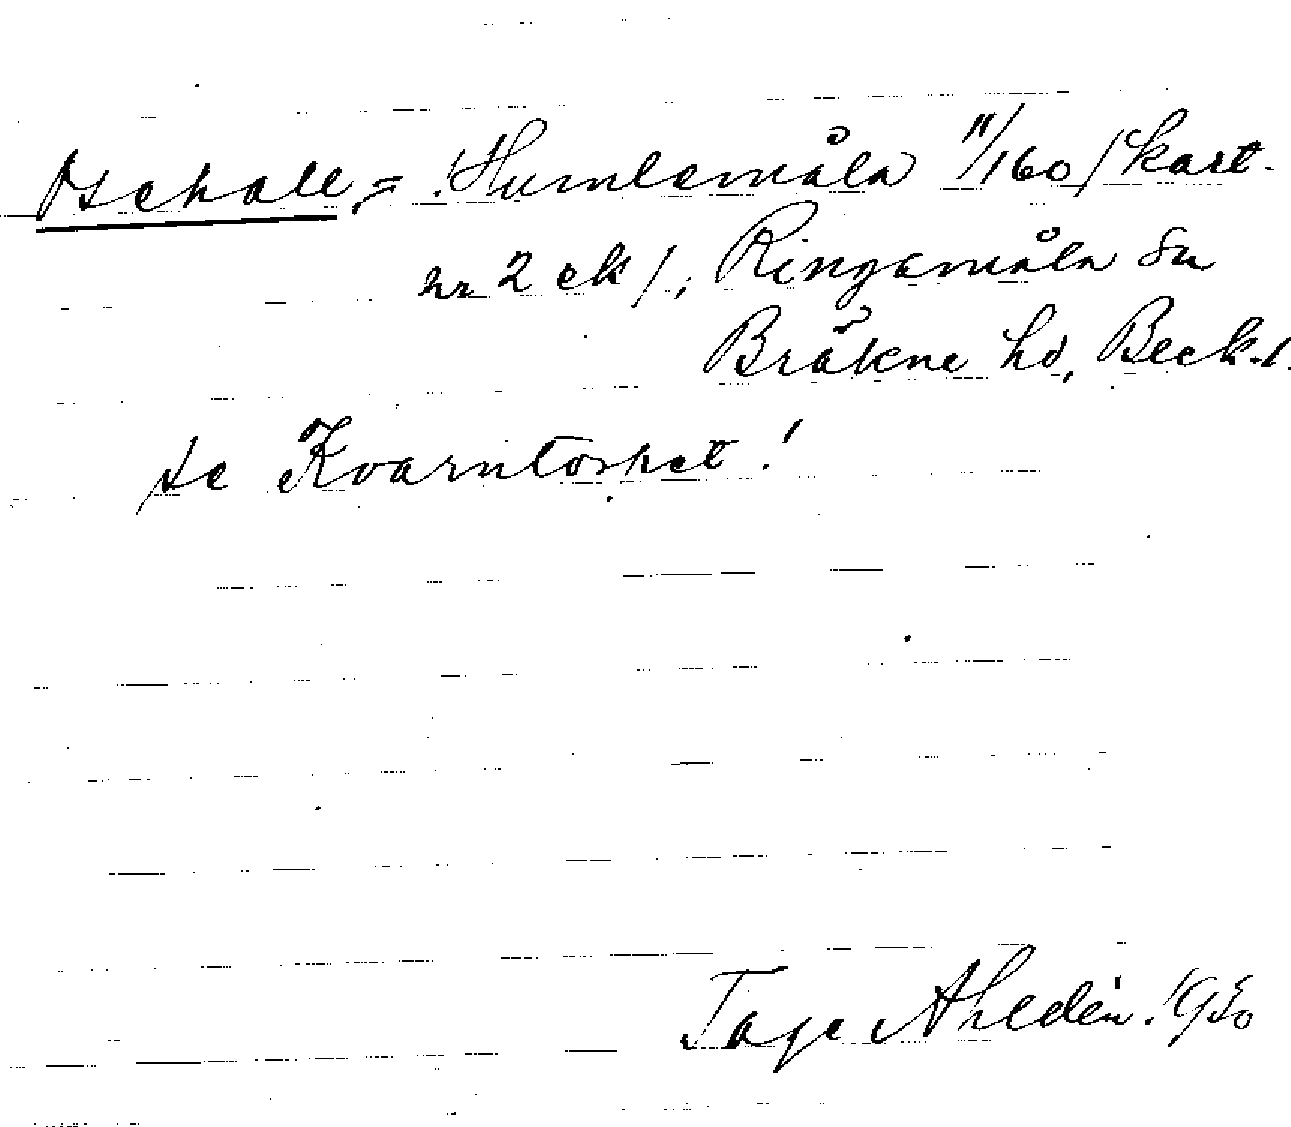 = Humlemåla 11/160 / kart.
nr 2 ek /, Ringamåla sn
Bräkne hd, Bleck.l.
se Kvarntorpet!
Tage Ahldén. 1930